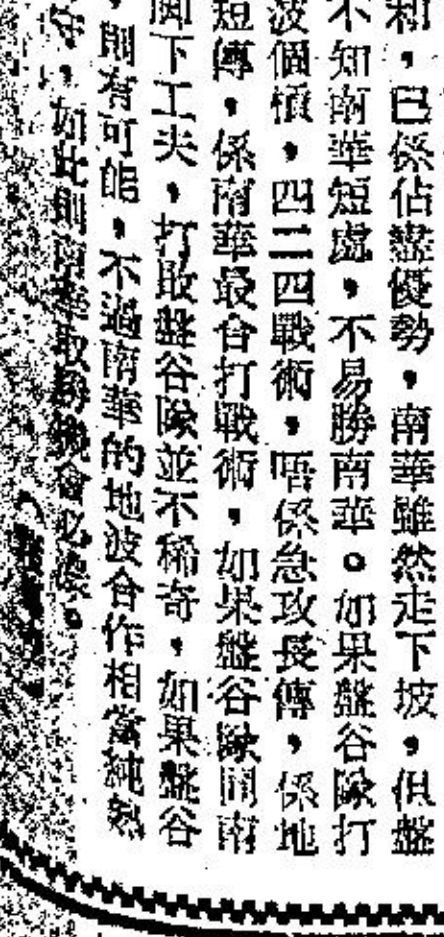 和，已係佔盡優勢，南華雖然走下坡，但盤
不知南華短處，不易勝南華。如果盤谷隊打
波個慣，四二四戰術，唔係急攻長傳，係地
短傳，係南華最合打戰術，如果盤谷隊同南
脚下工夫，打敗盤谷隊並不稀奇，如果盤谷
，則有可能，不過南華的地波合作相當純熟
守，如此則南華取勝機會必濃。